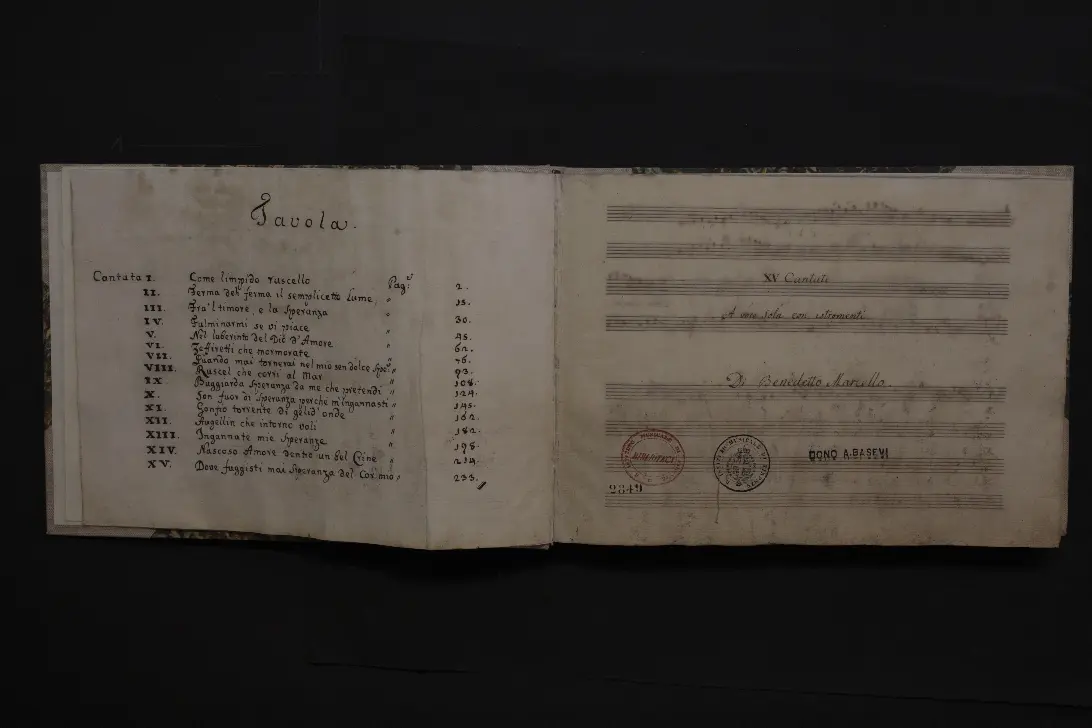 Tavola.
Cantata I. Come limpido ruscello Pag.e 2.
II. Ferma deh ferma il semplicetto lume, " 15.
III. Fra'l timore, e la speranza " 30.
IV. Fulminarmi se vi piace " 45.
V. Nel laberinto del Dio d'Amore " 62.
VI. Zeffiretti che mormorate " 76.
VII. Quando mai tornerai nel mio sen dolce Spe: " 93.
VIII. Ruscel che corri al Mar " 108.
IX. Buggiarda Speranza da me che pretendi " 124.
X. Son fuor di Speranza perche m'ingannasti " 145.
XI. Gonfio torrente di gelid'onde " 162.
XII. Augellin che intorno voli " 182.
XIII. Ingannate mie Speranze " 198.
XIV. Nascoso Amore dentro un bel Crine " 214.
XV. Dove fuggisti mai Speranza del Cor mio " 233.
XV Cantate
A voce sola con istromenti
Di Benedetto Marcello.
DONO A. BASEVI
2849